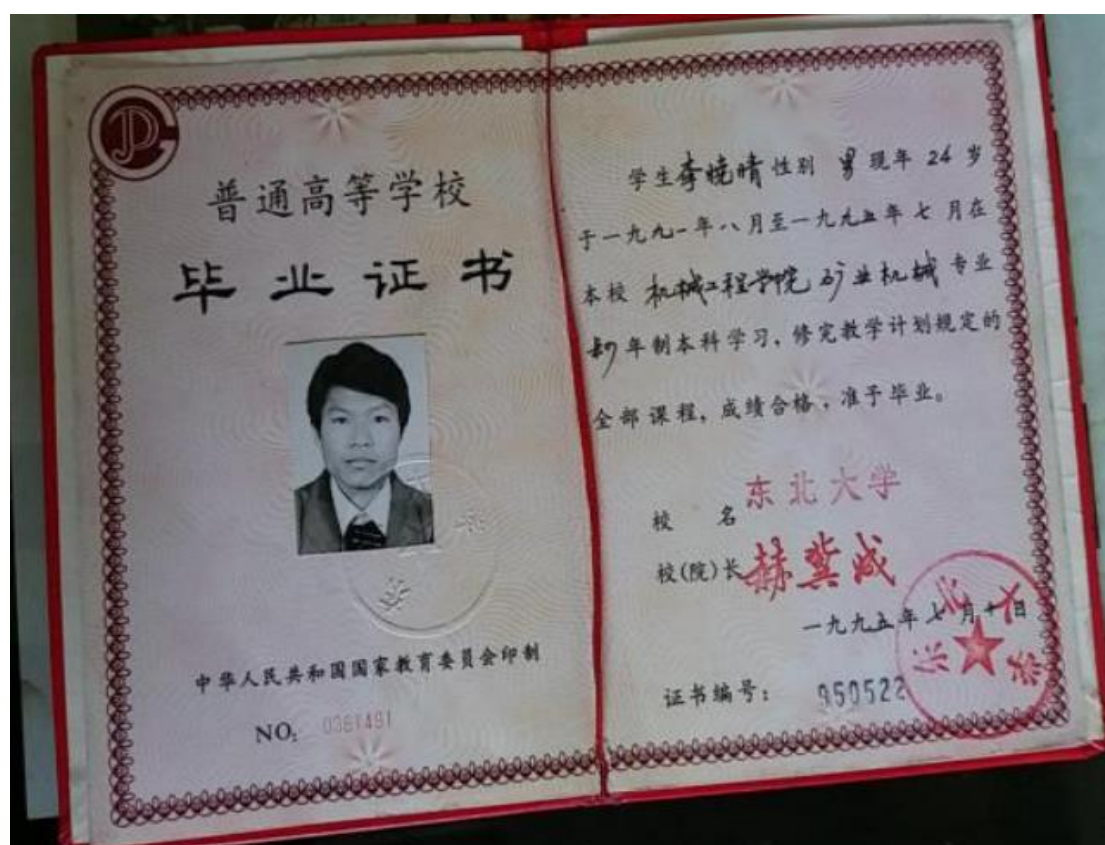 普通高等学校
毕业证书
中华人民共和国国家教育委员会印制
NO: 0381491
学生李晓晴性别 男 现年 24 岁
于一九九一年八月至一九九五年七月在
本校 机械工程学院矿业机械 专业
四年制本科学习，修完教学计划规定的
全部课程，成绩合格，准予毕业。
校 名 东北大学
校(院)长 赫冀成
一九九五年七月十日
证书编号： 950522
东北大学